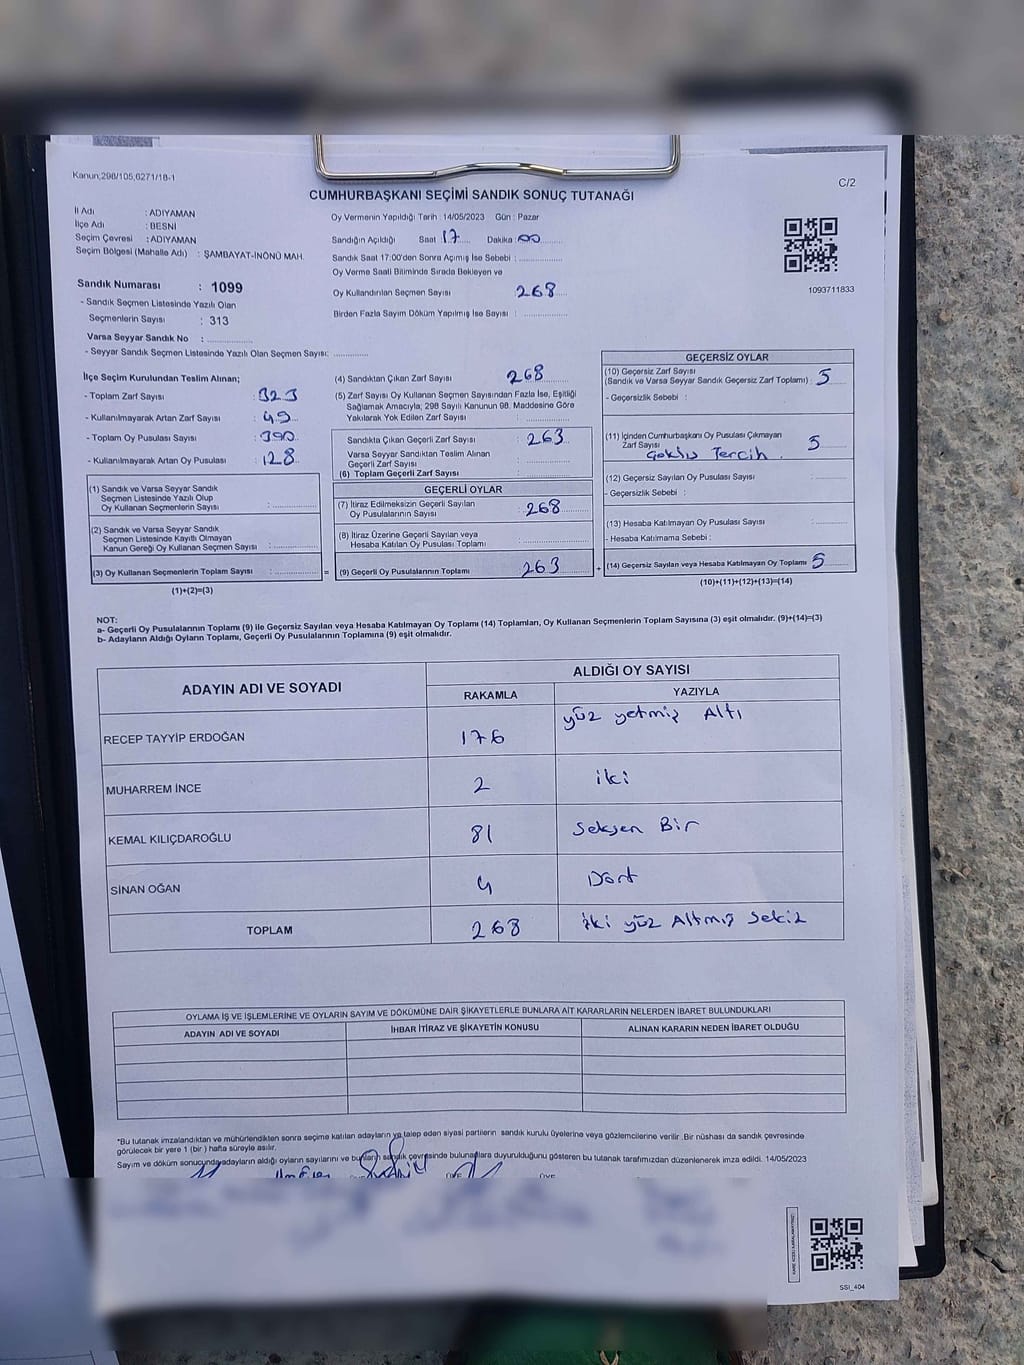 Kanun;298/105,6271/18-1
C/2
CUMHURBAŞKANI SEÇİMİ SANDIK SONUÇ TUTANAĞI
İl Adı : ADIYAMAN
İlçe Adı : BESNİ
Seçim Çevresi : ADIYAMAN
Seçim Bölgesi (Mahalle Adı) : ŞAMBAYAT-İNÖNÜ MAH.
Sandık Numarası : 1099
- Sandık Seçmen Listesinde Yazılı Olan
Seçmenlerin Sayısı : 313
Varsa Seyyar Sandık No :
- Seyyar Sandık Seçmen Listesinde Yazılı Olan Seçmen Sayısı:
Oy Vermenin Yapıldığı Tarih : 14/05/2023 Gün : Pazar
Sandığın Açıldığı Saat 17 Dakika : 00
Sandık Saat 17:00'den Sonra Açımış İse Sebebi :
Oy Verme Saati Bitiminde Sırada Bekleyen ve
Oy Kullandırılan Seçmen Sayısı 268
Birden Fazla Sayım Döküm Yapılmış İse Sayısı :
1093711833
İlçe Seçim Kurulundan Teslim Alınan;
- Toplam Zarf Sayısı : 323
- Kullanılmayarak Artan Zarf Sayısı : 49
- Toplam Oy Pusulası Sayısı : 390
- Kullanılmayarak Artan Oy Pusulası : 128
(1) Sandık ve Varsa Seyyar Sandık
Seçmen Listesinde Yazılı Olup
Oy Kullanan Seçmenlerin Sayısı :
(2) Sandık ve Varsa Seyyar Sandık
Seçmen Listesinde Kayıtlı Olmayan
Kanun Gereği Oy Kullanan Seçmen Sayısı :
(3) Oy Kullanan Seçmenlerin Toplam Sayısı : =
(1)+(2)=(3)
(4) Sandıktan Çıkan Zarf Sayısı 268
(5) Zarf Sayısı Oy Kullanan Seçmen Sayısından Fazla İse, Eşitliği
Sağlamak Amacıyla; 298 Sayılı Kanunun 98. Maddesine Göre
Yakılarak Yok Edilen Zarf Sayısı :
Sandıkta Çıkan Geçerli Zarf Sayısı : 263
Varsa Seyyar Sandıktan Teslim Alınan
Geçerli Zarf Sayısı :
(6) Toplam Geçerli Zarf Sayısı :
GEÇERLİ OYLAR
(7) İtiraz Edilmeksizin Geçerli Sayılan
Oy Pusulalarının Sayısı : 268
(8) İtiraz Üzerine Geçerli Sayılan veya
Hesaba Katılan Oy Pusulası Toplamı :
(9) Geçerli Oy Pusulalarının Toplamı 263 +
GEÇERSİZ OYLAR
(10) Geçersiz Zarf Sayısı
(Sandık ve Varsa Seyyar Sandık Geçersiz Zarf Toplamı) : 5
- Geçersizlik Sebebi :
(11) İçinden Cumhurbaşkanı Oy Pusulası Çıkmayan
Zarf Sayısı : 5
Tercih
(12) Geçersiz Sayılan Oy Pusulası Sayısı :
- Geçersizlik Sebebi :
(13) Hesaba Katılmayan Oy Pusulası Sayısı :
- Hesaba Katılmama Sebebi :
(14) Geçersiz Sayılan veya Hesaba Katılmayan Oy Toplamı 5
(10)+(11)+(12)+(13)=(14)
NOT:
a- Geçerli Oy Pusulalarının Toplamı (9) ile Geçersiz Sayılan veya Hesaba Katılmayan Oy Toplamı (14) Toplamları, Oy Kullanan Seçmenlerin Toplam Sayısına (3) eşit olmalıdır. (9)+(14)=(3)
b- Adayların Aldığı Oyların Toplamı, Geçerli Oy Pusulalarının Toplamına (9) eşit olmalıdır.
ADAYIN ADI VE SOYADI
ALDIĞI OY SAYISI
RAKAMLA YAZIYLA
RECEP TAYYİP ERDOĞAN 176 yüz yetmiş Altı
MUHARREM İNCE 2 iki
KEMAL KILIÇDAROĞLU 81 Seksen Bir
SİNAN OĞAN 4 Dört
TOPLAM 268 iki yüz Altmış Sekiz
OYLAMA İŞ VE İŞLEMLERİNE VE OYLARIN SAYIM VE DÖKÜMÜNE DAİR ŞİKAYETLERLE BUNLARA AİT KARARLARIN NELERDEN İBARET BULUNDUKLARI
ADAYIN ADI VE SOYADI İHBAR İTİRAZ VE ŞİKAYETİN KONUSU ALINAN KARARIN NEDEN İBARET OLDUĞU
*Bu tutanak imzalandıktan ve mühürlendikten sonra seçime katılan adayların ve talep eden siyasi partilerin sandık kurulu üyelerine veya gözlemcilerine verilir. Bir nüshası da sandık çevresinde
görülecek bir yere 1 (bir) hafta süreyle asılır.
Sayım ve döküm sonucunda adayların aldığı oyların sayılarını ve bunların sandık çevresinde bulunanlara duyurulduğunu gösteren bu tutanak tarafımızdan düzenlenerek imza edildi. 14/05/2023
SSİ_404